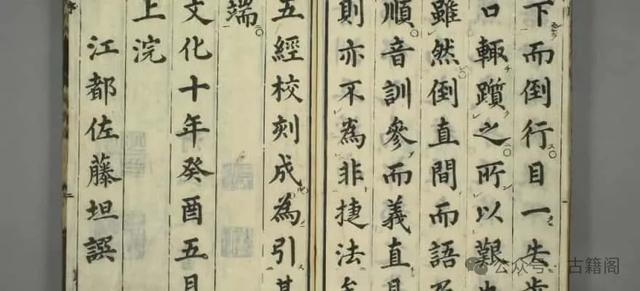 下而倒行目一失步
口輙躓之所以艱也
雖然倒直間而語
順音訓參而義直
則亦不為非捷法
五經校刻成為引其
端
文化十年癸酉五月
上浣
江都佐藤坦譔
公众号·古籍阁